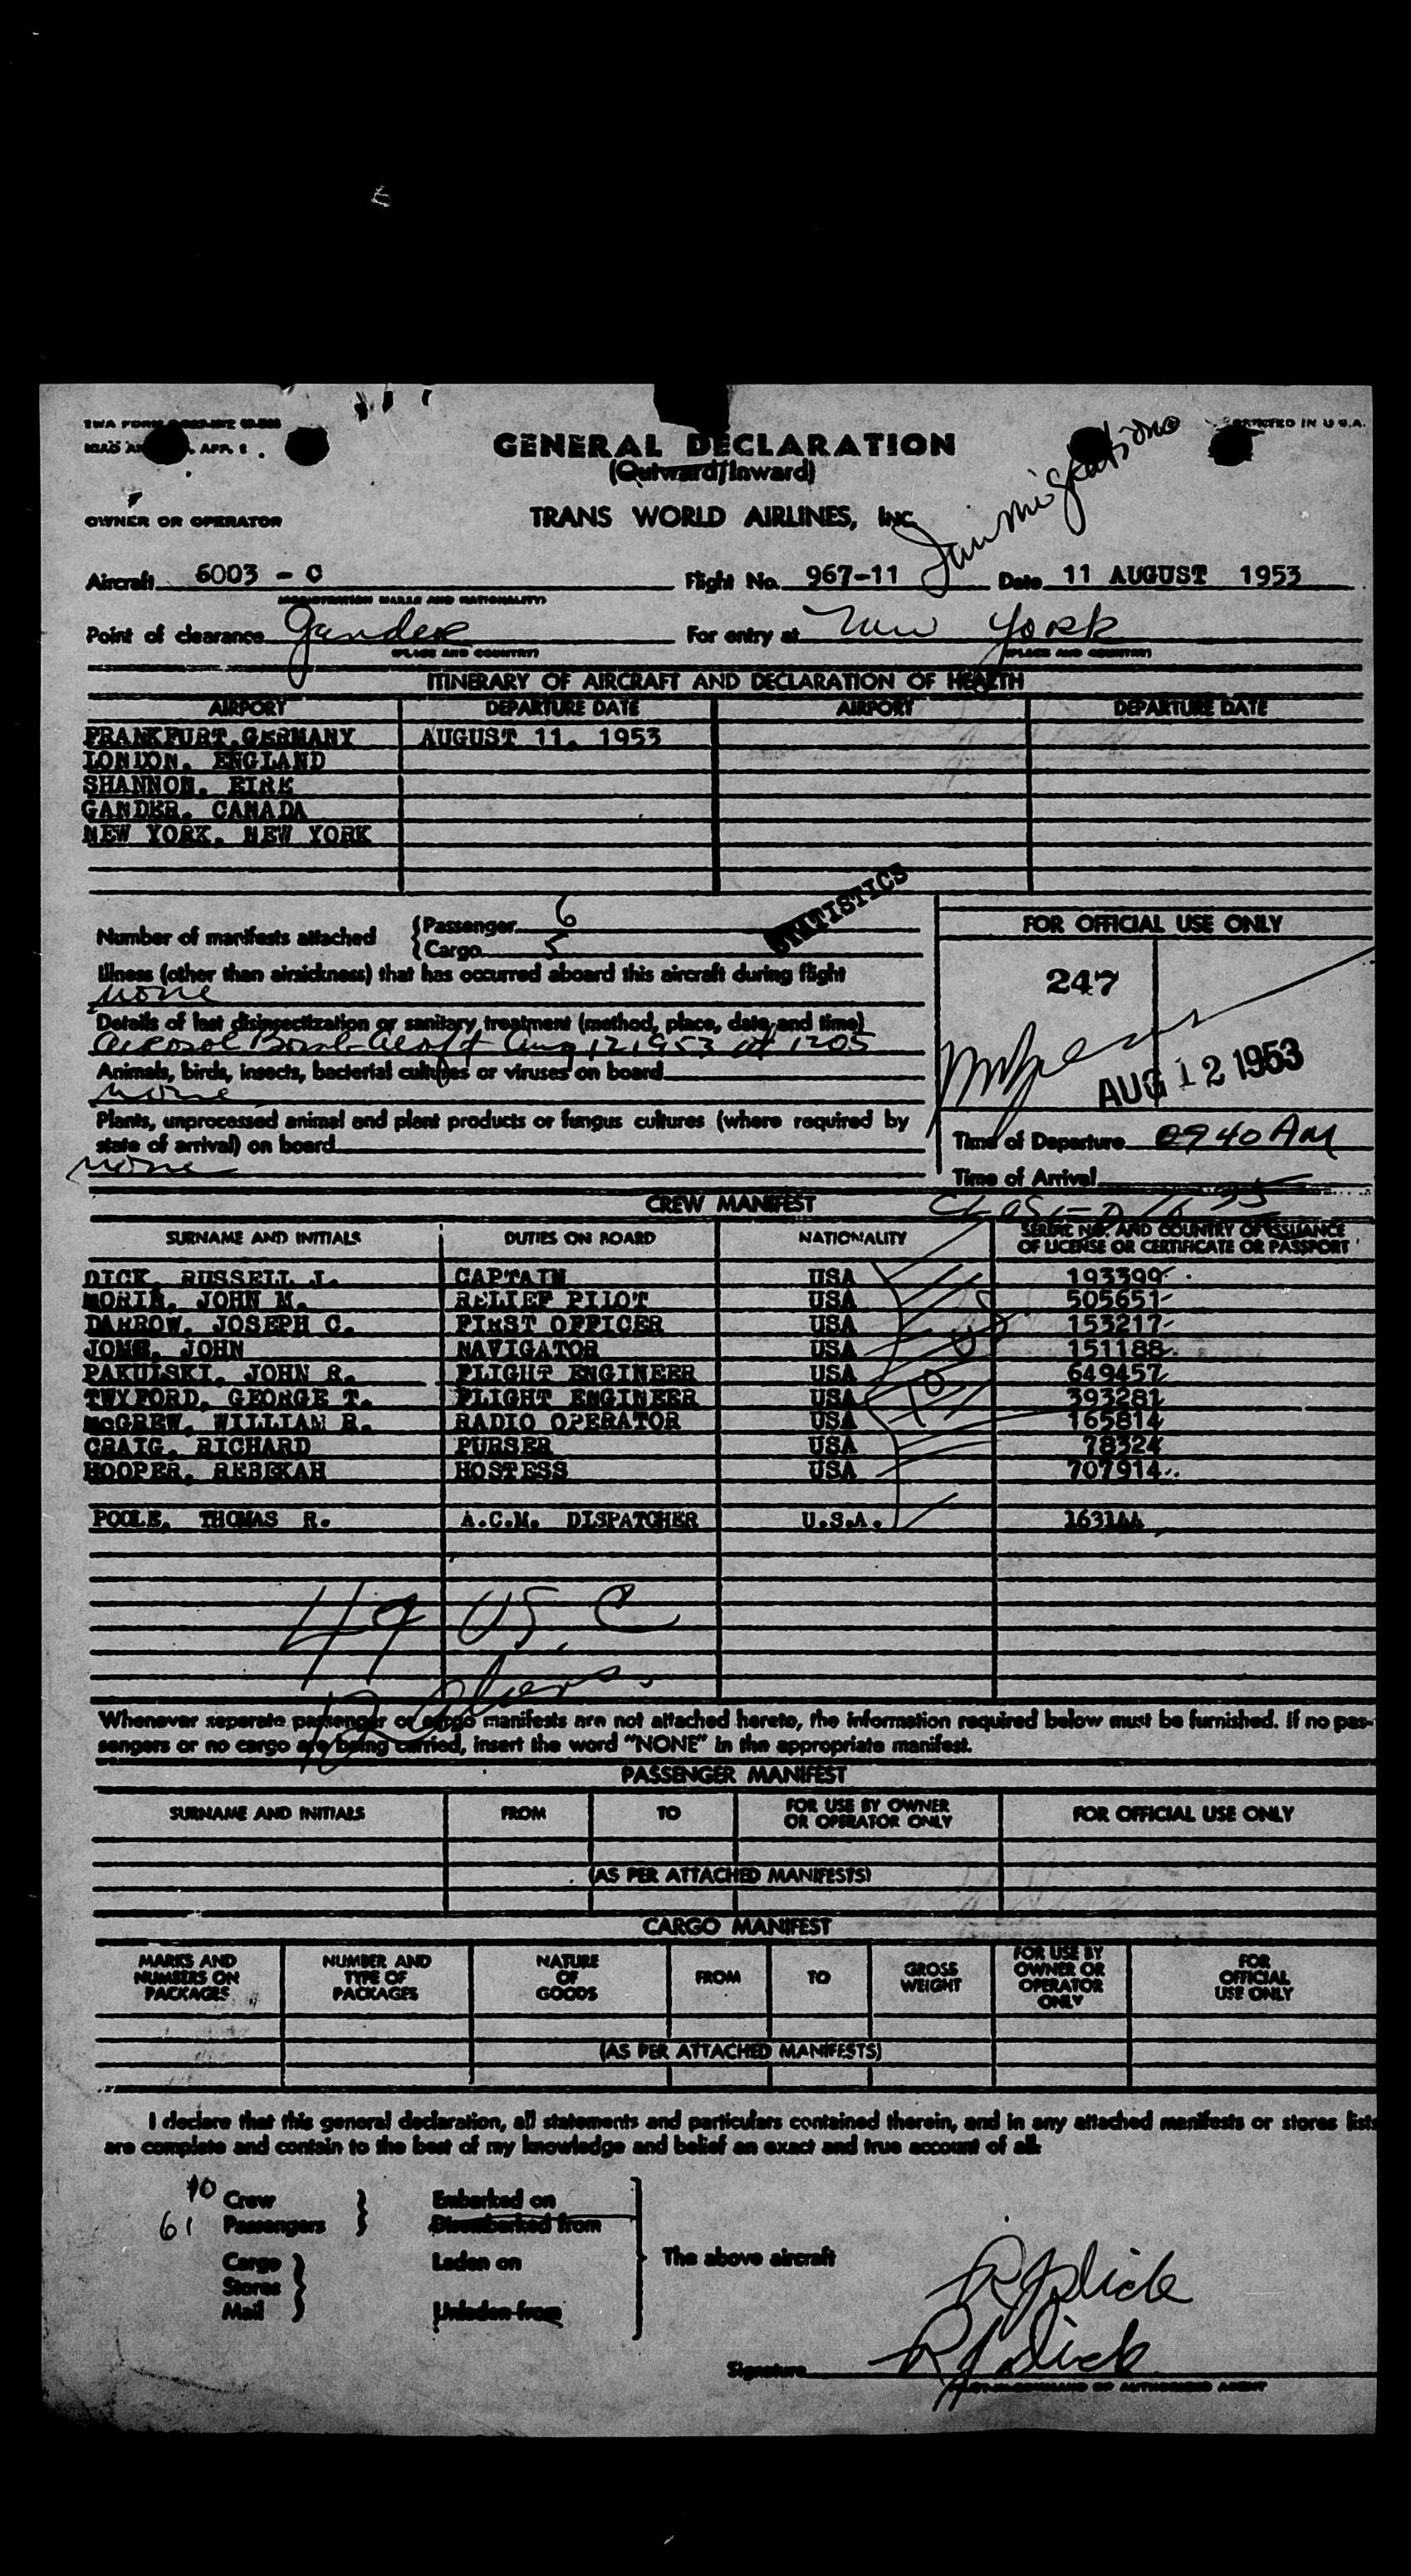 GENERAL DECLARATION
PRINTED IN U.S.A.
(Outward/Inward)
Immigrations
OWNER OR OPERATOR
TRANS WORLD AIRLINES, INC.
Aircraft 6003 - C Flight No. 967-11 Date 11 AUGUST 1953
(REGISTRATION MARKS AND NATIONALITY)
Point of clearance Gander For entry at New York
(PLACE AND COUNTRY) (PLACE AND COUNTRY)
ITINERARY OF AIRCRAFT AND DECLARATION OF HEALTH
AIRPORT DEPARTURE DATE AIRPORT DEPARTURE DATE
FRANKFURT, GERMANY AUGUST 11, 1953
LONDON, ENGLAND
SHANNON, EIRE
GANDER, CANADA
NEW YORK, NEW YORK
STATISTICS
Number of manifests attached
(Passenger 6
(Cargo 5
FOR OFFICIAL USE ONLY
247
Illness (other than airsickness) that has occurred aboard this aircraft during flight
none
Details of last disinsectization or sanitary treatment (method, place, date, and time)
Aerosol Bomb Aloft Aug 12 1953 at 1205
AUG 12 1953
Animals, birds, insects, bacterial cultures or viruses on board
none
Plants, unprocessed animal and plant products or fungus cultures (where required by
state of arrival) on board
none
Time of Departure 0940 AM
Time of Arrival
CREW MANIFEST
SURNAME AND INITIALS DUTIES ON BOARD NATIONALITY SERIAL NO. AND COUNTRY OF ISSUANCE
OF LICENSE OR CERTIFICATE OR PASSPORT
DICK, RUSSELL J. CAPTAIN USA 193399
MORIN, JOHN M. RELIEF PILOT USA 505651
DARROW, JOSEPH C. FIRST OFFICER USA 153217
JOHN NAVIGATOR USA 151188
PAKULSKI, JOHN R. FLIGHT ENGINEER USA 649457
TWYFORD, GEORGE T. FLIGHT ENGINEER USA 393281
McGREW, WILLIAM R. RADIO OPERATOR USA 165814
CRAIG, RICHARD PURSER USA 78324
HOOPER, REBEKAH HOSTESS USA 707914
POOLE, THOMAS R. A.C.M. DISPATCHER U.S.A. 163144
49 US C
12 Aliens
Whenever separate passenger or cargo manifests are not attached hereto, the information required below must be furnished. If no pas-
sengers or no cargo are being carried, insert the word "NONE" in the appropriate manifest.
PASSENGER MANIFEST
SURNAME AND INITIALS FROM TO FOR USE BY OWNER
OR OPERATOR ONLY FOR OFFICIAL USE ONLY
(AS PER ATTACHED MANIFESTS)
CARGO MANIFEST
MARKS AND
NUMBERS ON
PACKAGES
NUMBER AND
TYPE OF
PACKAGES
NATURE
OF
GOODS
FROM
TO
GROSS
WEIGHT
FOR USE BY
OWNER OR
OPERATOR
ONLY
FOR
OFFICIAL
USE ONLY
(AS PER ATTACHED MANIFESTS)
I declare that this general declaration, all statements and particulars contained therein, and in any attached manifests or stores lists
are complete and contain to the best of my knowledge and belief an exact and true account of all:
10 Crew Embarked on
61 Passengers Disembarked from
Cargo Laden on The above aircraft
Stores
Mail Unladen from
RJ Dick
Signature RJ Dick
PILOT-IN-COMMAND OR AUTHORIZED AGENT